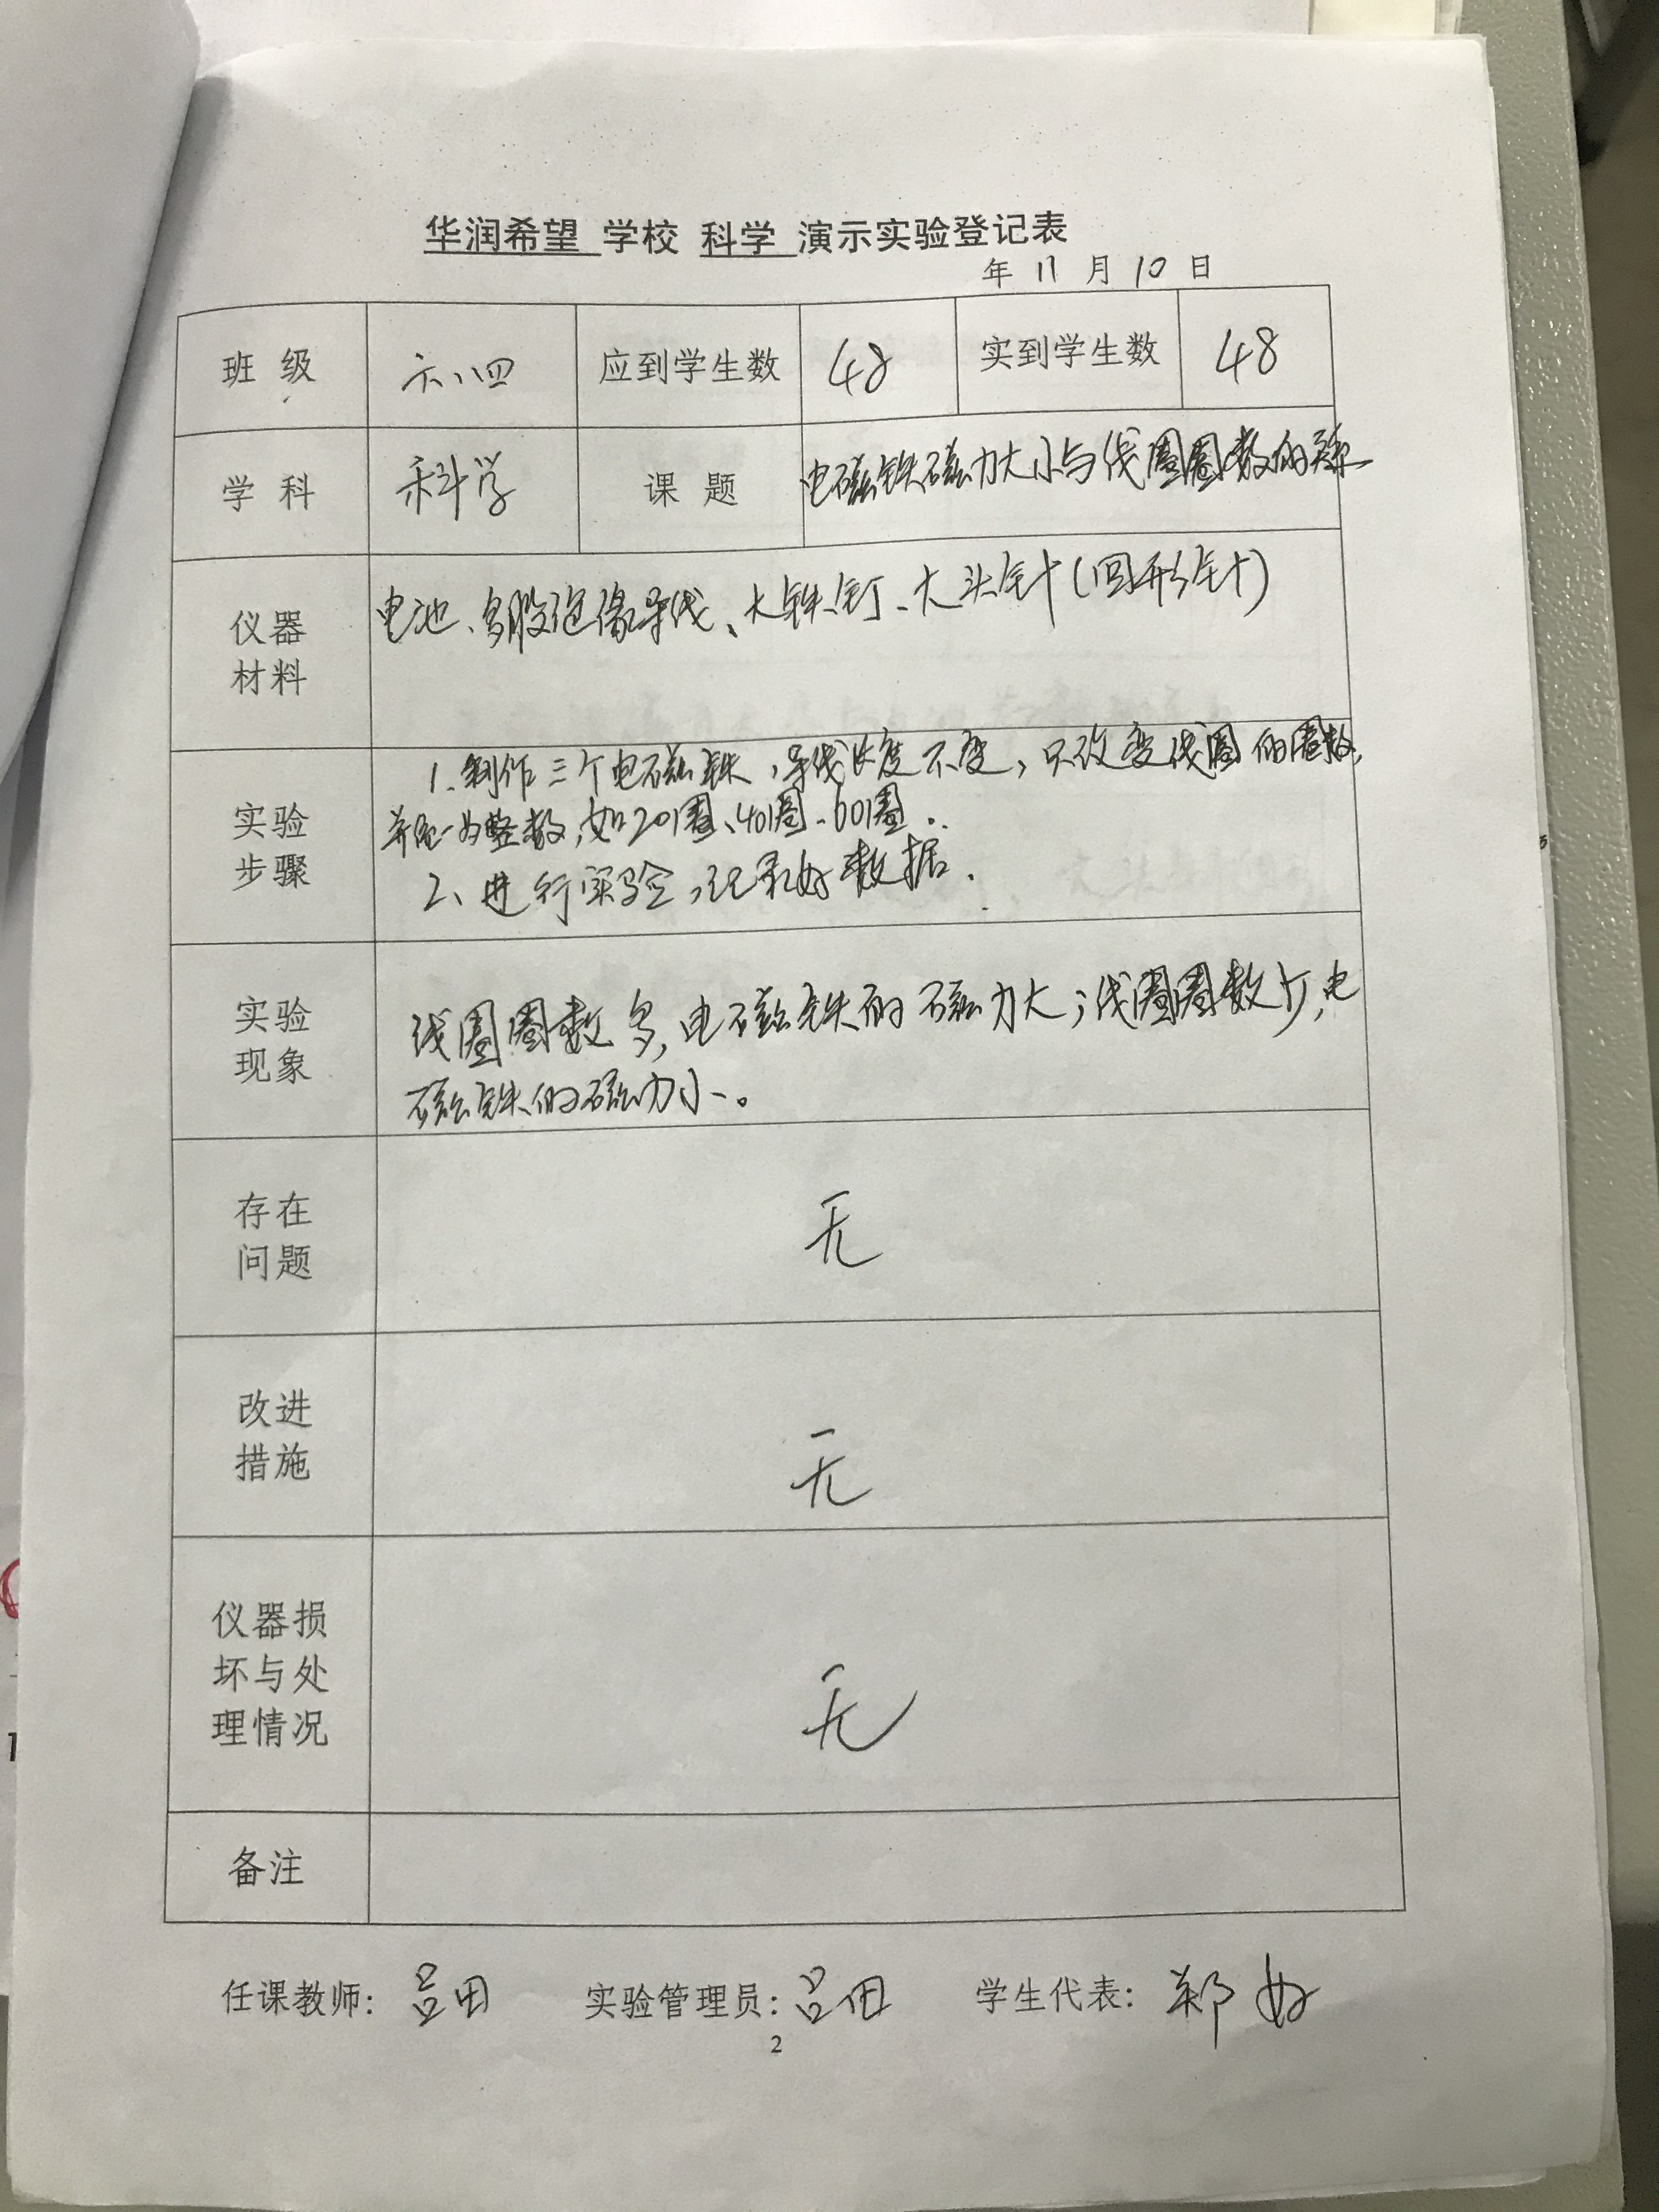 华润希望 学校 科学 演示实验登记表
年 11 月 10 日
班 级 六、四 应到学生数 48 实到学生数 48
学 科 科学 课 题 电磁铁磁力大小与线圈圈数的关系
仪器
材料
电池、多股绝缘导线、大铁钉、大头针(回形针)
实验
步骤
1.制作三个电磁铁,导线长度不变,只改变线圈的圈数,
并统一为整数,如20圈、40圈、60圈.
2、进行实验,记录好数据.
实验
现象
线圈圈数多,电磁铁的磁力大;线圈圈数少,电
磁铁的磁力小。
存在
问题
无
改进
措施
无
仪器损
坏与处
理情况
无
备注
任课教师: 吕田 实验管理员: 吕田 学生代表: 郑好
2